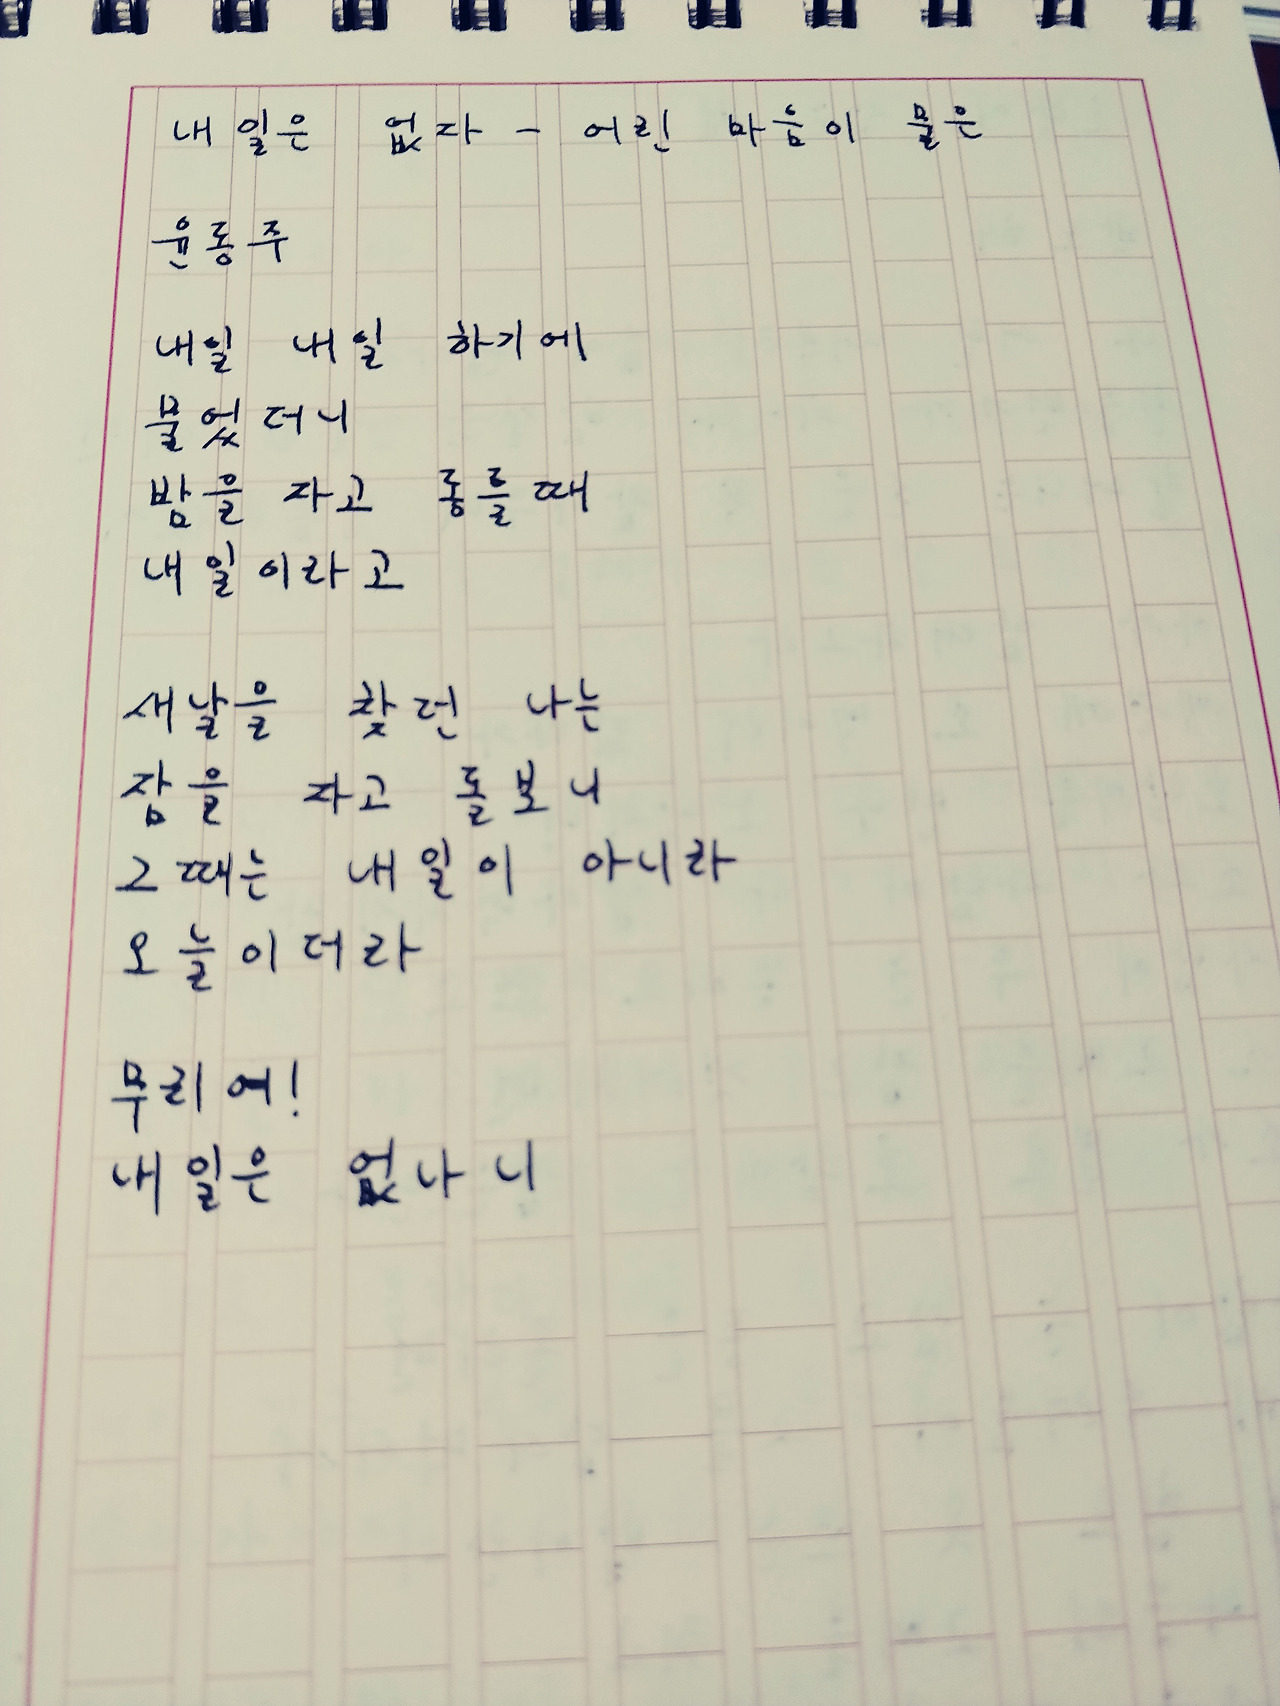 내일은 없다 - 어린 마음이 물은
윤동주
내일 내일 하기에
물었더니
밤을 자고 동틀때
내일이라고
새날을 찾던 나는
잠을 자고 돌보니
그때는 내일이 아니라
오늘이더라
무리여!
내일은 없나니